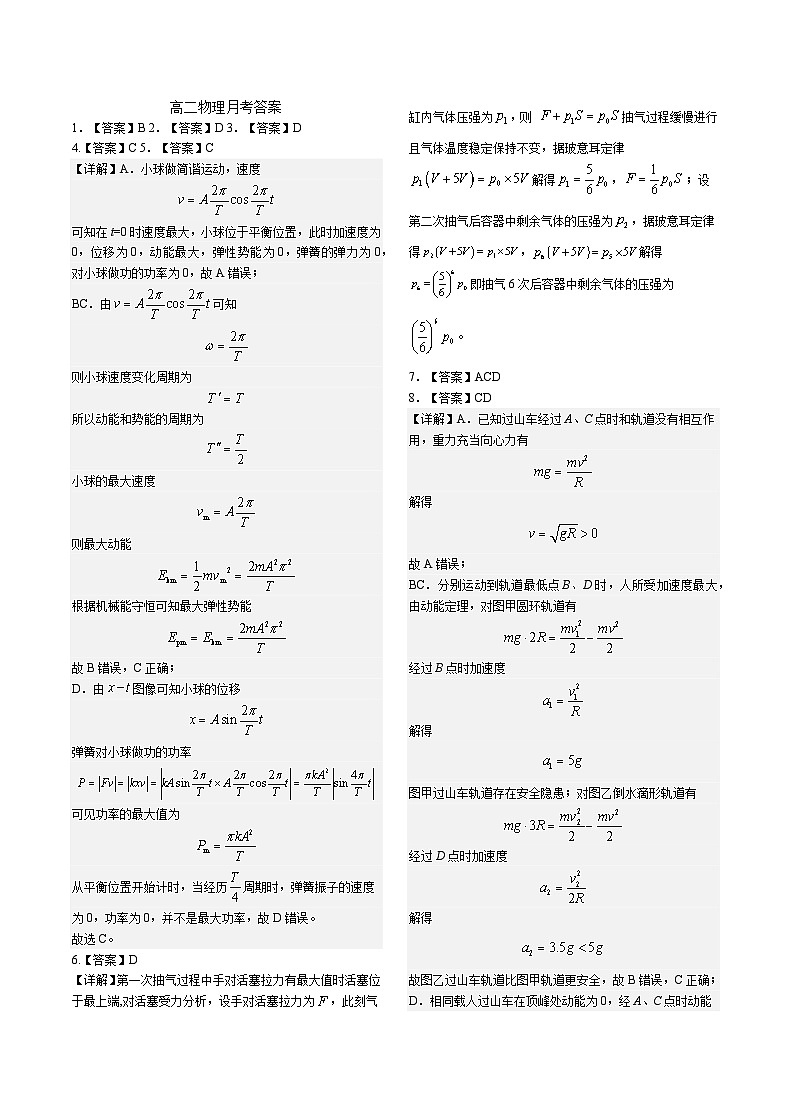 高二物理月考答案
1. 【答案】B 2. 【答案】D 3. 【答案】D
4.【答案】C 5. 【答案】C
【详解】A．小球做简谐运动，速度
v = A 2π/T cos 2π/T t
可知在 t=0 时速度最大，小球位于平衡位置，此时加速度为
0，位移为 0，动能最大，弹性势能为 0，弹簧的弹力为 0，
对小球做功的功率为 0，故 A 错误；
BC．由 v = A 2π/T cos 2π/T t 可知
ω = 2π/T
则小球速度变化周期为
T′ = T
所以动能和势能的周期为
T″ = T/2
小球的最大速度
vₘ = A 2π/T
则最大动能
Eₖₘ = 1/2 mvₘ² = 2mA²π²/T
根据机械能守恒可知最大弹性势能
Eₚₘ = Eₖₘ = 2mA²π²/T
故 B 错误，C 正确；
D．由 x−t 图像可知小球的位移
x = A sin 2π/T t
弹簧对小球做功的功率
P = |Fv| = |kxv| = |kA sin 2π/T t × A 2π/T cos 2π/T t| = πkA²/T |sin 4π/T t|
可见功率的最大值为
Pₘ = πkA²/T
从平衡位置开始计时，当经历 T/4 周期时，弹簧振子的速度
为 0，功率为 0，并不是最大功率，故 D 错误。
故选 C。
6.【答案】D
【详解】第一次抽气过程中手对活塞拉力有最大值时活塞位
于最上端,对活塞受力分析，设手对活塞拉力为 F，此刻气
缸内气体压强为 p₁,则 F + p₁S = p₀S 抽气过程缓慢进行
且气体温度稳定保持不变，据玻意耳定律
p₁(V+5V) = p₀×5V 解得 p₁ = 5/6 p₀，F = 1/6 p₀S；设
第二次抽气后容器中剩余气体的压强为 p₂，据玻意耳定律
得 p₂(V+5V) = p₁×5V，p₆(V+5V) = p₅×5V 解得
p₆ = (5/6)⁶ p₀ 即抽气 6 次后容器中剩余气体的压强为
(5/6)⁶ p₀。
7. 【答案】ACD
8. 【答案】CD
【详解】A．已知过山车经过 A、C 点时和轨道没有相互作
用，重力充当向心力有
mg = mv²/R
解得
v = √gR > 0
故 A 错误；
BC．分别运动到轨道最低点 B、D 时，人所受加速度最大，
由动能定理，对图甲圆环轨道有
mg·2R = mv₁²/2 − mv²/2
经过 B 点时加速度
a₁ = v₁²/R
解得
a₁ = 5g
图甲过山车轨道存在安全隐患；对图乙倒水滴形轨道有
mg·3R = mv₂²/2 − mv²/2
经过 D 点时加速度
a₂ = v₂²/2R
解得
a₂ = 3.5g < 5g
故图乙过山车轨道比图甲轨道更安全，故 B 错误，C 正确；
D．相同载人过山车在顶峰处动能为 0，经 A、C 点时动能